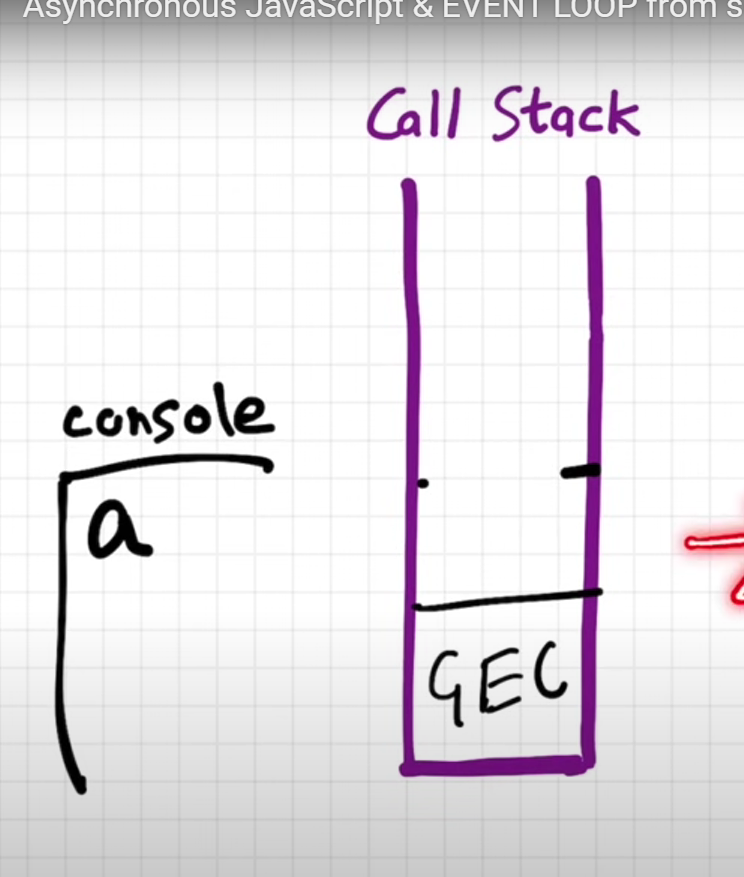 Asynchronous JavaScript & EVENT LOOP from s
Call Stack
console
a
GEC